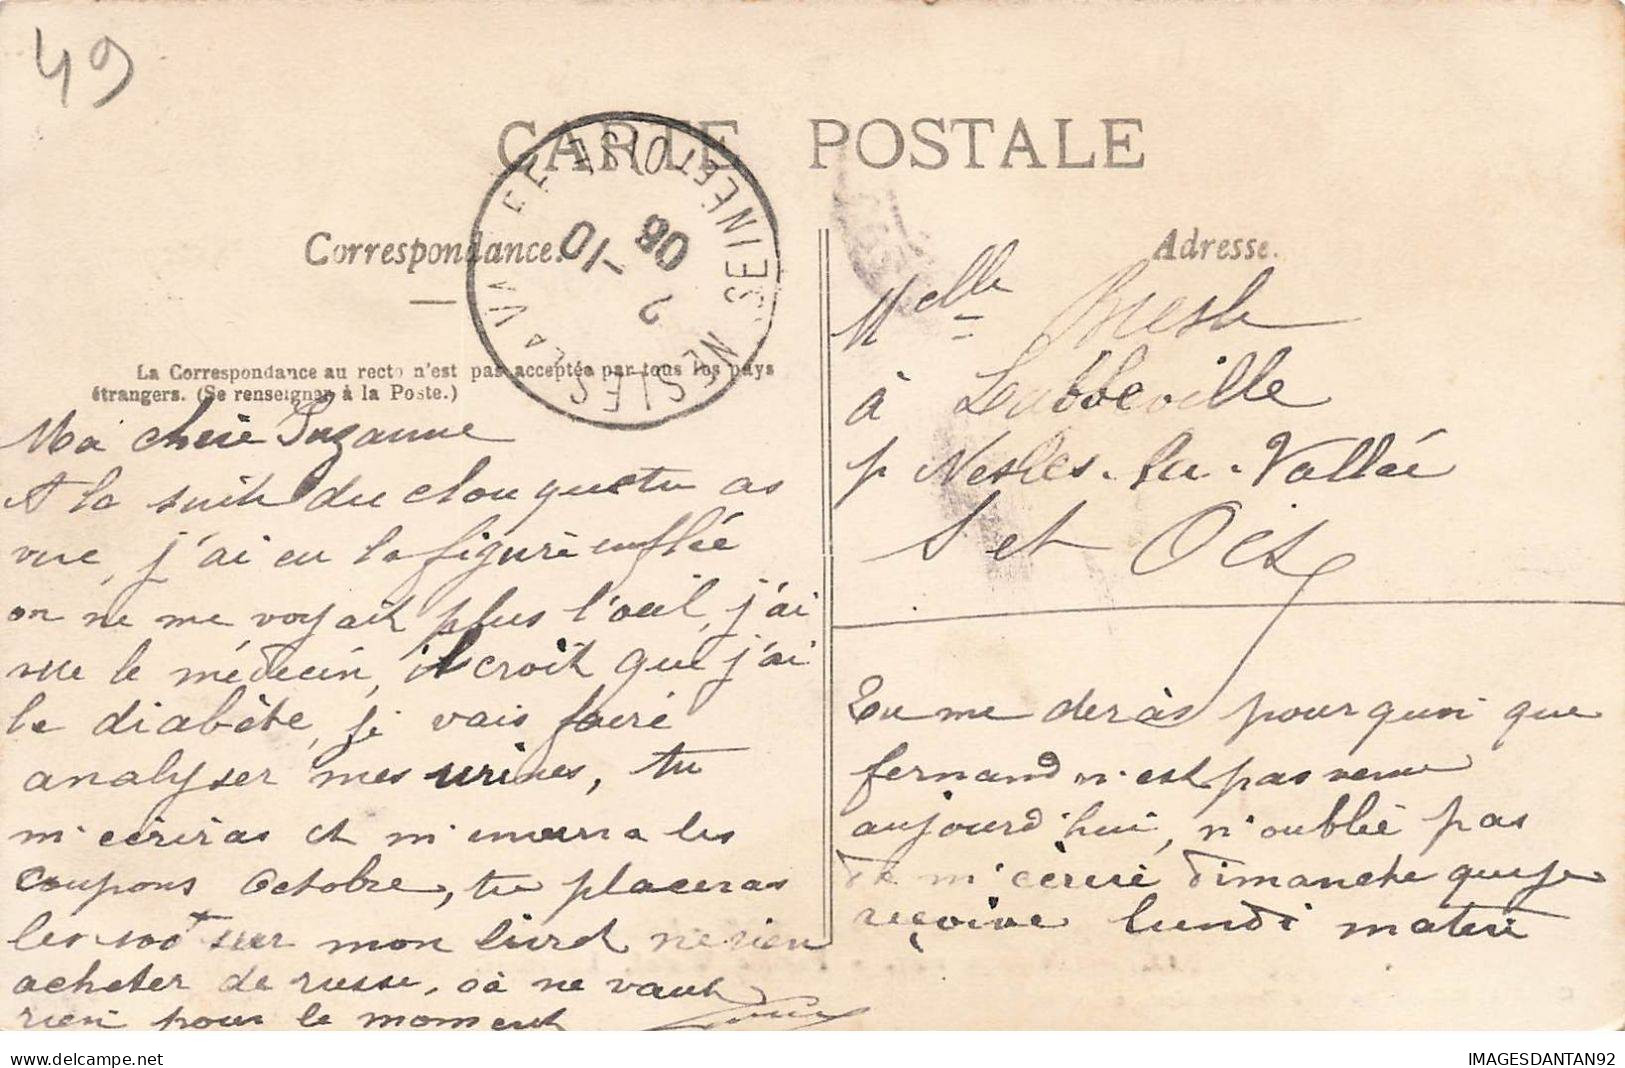 49
CARTE POSTALE
Correspondance.
Adresse.
La Correspondance au recto n'est pas acceptée par tous les pays
étrangers. (Se renseigner à la Poste.)
NESLES LA VALLEE SEINE ET OISE
2 -10 06
Melle
à Labbeville
p Nesles-la-Vallée
S et Oise
Ma chère Suzanne
A la suite du clou que tu as
vue, j'ai eu la figure enflée
on ne me voyait plus l'oeil, j'ai
vue le médecin, il croit que j'ai
le diabète, je vais faire
analyser mes urines, tu
m'ecriras et m'enverra les
coupons Octobre, tu placeras
les 100f sur mon livret ne rien
acheter de russe, ça ne vaut
rien pour le moment
Tu me deras pourquoi que
fernand n'est pas venue
aujourd'hui, n'oublie pas
de m'ecrire dimanche que je
reçoive lundi matin
IMAGESDANTAN92